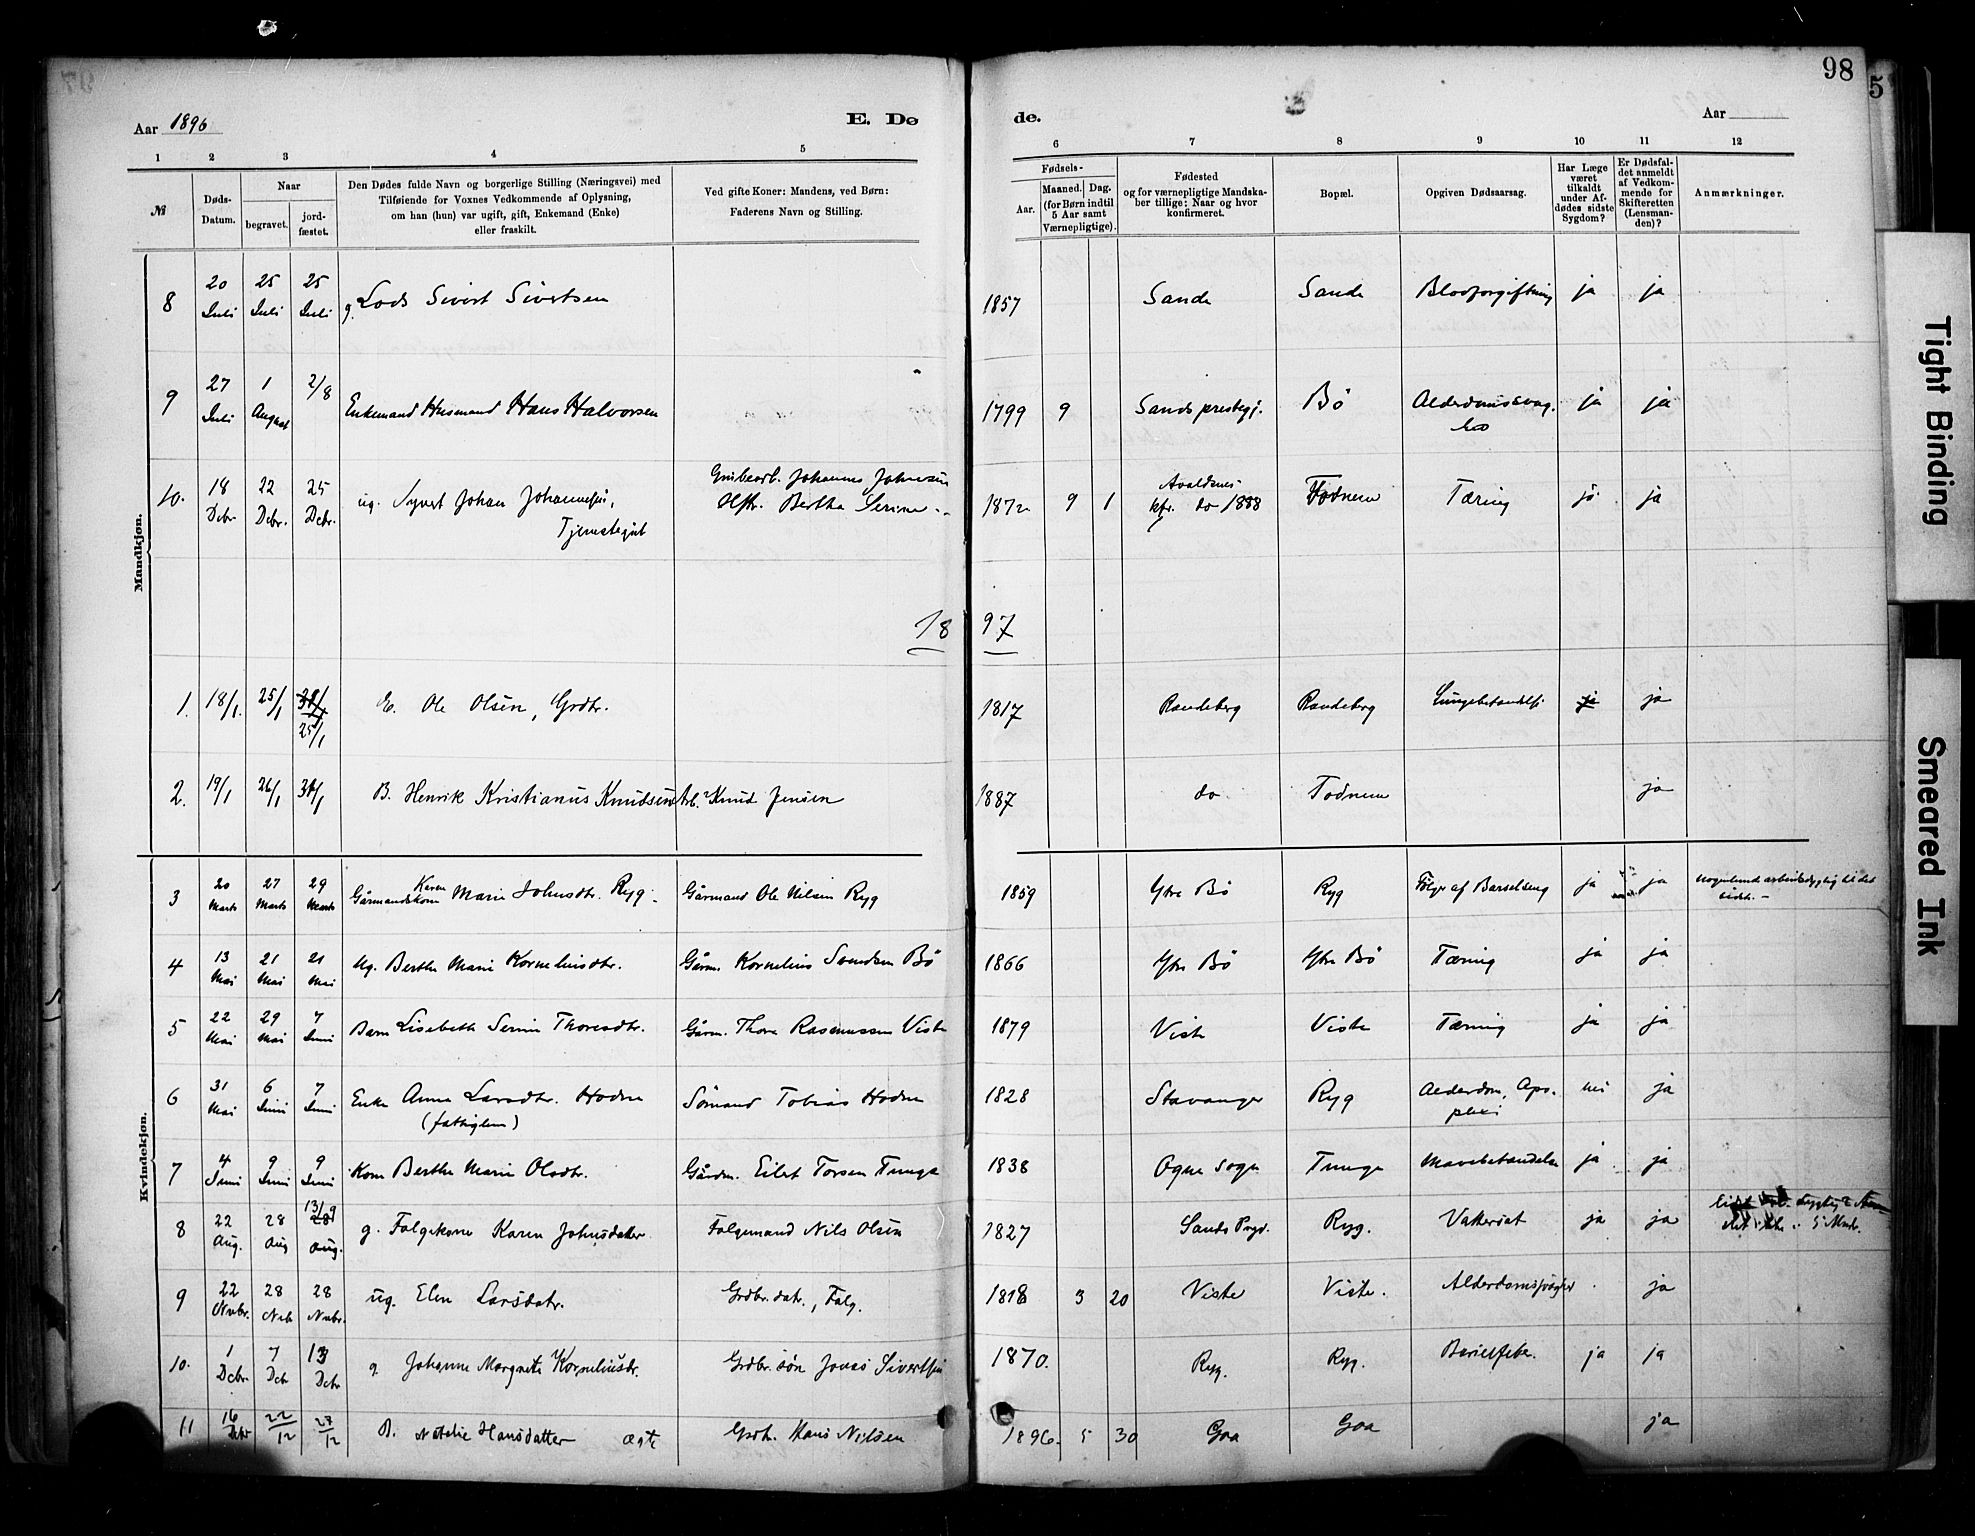 98
5
Aar 1896
E. Dø
de.
Aar
1 2 3 4 5 6 7 8 9 10 11 12
№
Døds-
Datum.
Naar
begravet.
jord-
fæstet.
Den Dødes fulde Navn og borgerlige Stilling (Næringsvei) med
Tilføiende for Voxnes Vedkommende af Oplysning,
om han (hun) var ugift, gift, Enkemand (Enke)
eller fraskilt.
Ved gifte Koner: Mandens, ved Børn:
Faderens Navn og Stilling.
Fødsels-
Aar.
Maaned. Dag.
(for Børn indtil
5 Aar samt
Værnepligtige).
Fødested
og for værnepligtige Mandska-
ber tillige: Naar og hvor
konfirmeret.
Bopæl.
Opgiven Dødsaarsag.
Har Læge
været
tilkaldt
under Af-
dødes sidste
Sygdom?
Er Dødsfal-
det anmeldt
af Vedkom-
mende for
Skifteretten
(Lensman-
den)?
Anmærkninger.
Mandkjøn.
8 20 Juli 25 Juli 25 Juli g. Lods Sivert Sivertsen 1857 Sande Sande Blodforgiftning ja ja
9 27 Juli 1 August 2/8 Enkemand Husmand Hans Halvorsen 1799 9 Sands prestegj. Bø Alderdomssvag- hed ja ja
10. 18 Debr. 22 Debr. 25 Debr. ug. Syvert Johan Johannesen,
Tjenestegut
Johannes Johnsen
Hstr. Bertha Serine
1872 9 1 Avaldsnes
kfr. do 1888 Todnem Tæring ja ja
18 97
1. 18/1. 25/1 31/1 25/1 E. Ole Olsen, Grdbr. 1817 Randeberg Randeberg Lungebetændelse ja ja
2. 19/1 26/1 31/1 B. Henrik Kristianus Knudsen Arb. Knud Jensen 1887 do Todnem ja
Kvindekjøn.
3 20 Marts 27 Marts 29 Marts Gårmandskone Karen Marie Johnsdtr. Ryg. Gårmand Ole Nilsen Ryg 1859 Ytre Bø Ryg Følge af Barselseng ja ja
4 13 Mai 21 Mai 21 Mai Ug. Berthe Marie Korneliusdtr. Gårm. Kornelius Svendsen Bø 1866 Ytre Bø Ytre Bø Tæring ja ja
5 22 Mai 29 Mai 7 Juni Barn Lisebeth Serine Thoresdtr. Gårm. Thore Rasmussen Viste 1879 Viste Viste Tæring ja ja
6 31 Mai 6 Juni 7 Juni Enke Anna Larsdtr. Hodne
(fattiglem)
Sømand Tobias Hodne 1828 Stavanger Ryg Alderdom, Apo-
plexi nei ja
7 4 Juni 9 Juni 9 Juni Kone Berthe Marie Olsdtr. Gårdm. Eilet Torsen Tunge 1838 Ogne Sogn Tunge Mavebetændelse ja ja
8 22 Aug. 28 Aug 13/9 28 Aug. g. Folgekone Karen Johnsdatter Folgemand Nils Olsen 1827 Sands Prgd. Ryg. Vattersot ja ja
9 22 Nvbr. 28 Nvb 28 Nvbr. ug. Elen Larsdatr. Grdbr. datr., Folg. 1818 3 20 Viste Viste. ja
10. 1 Debr. 7 Debr 13 Debr g. Johanne Margrete Korneliusdr. Grdbr. søn Jonas Sivertsen 1870. Ryg. Ryg. Barselfeber. ja ja
11 16 Debr 22/12 27/12 B. Natalie Hansdatter ægte Grdb. Hans Nilsen 1896. 5 30 Goa Goa ja
Tight Binding
Smeared Ink